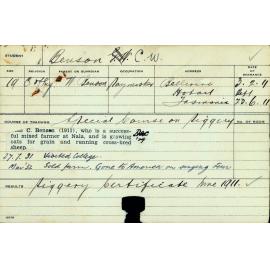 STUDENT Benson C. W.
AGE RELIGION PARENT OR GUARDIAN OCCUPATION ADDRESS DATE OF ENTRANCE
19 W. Benson Bellerive 3.2.11
Hobart Left
Tasmania 23.6.11
COURSE OF TRAINING Special Course in Piggery NO. OF COURSE
C. Benson (1911), who is a success-
ful mixed farmer at Nala, and is growing
oats for grain and running cross-bred
sheep.
27.7.31 Visited College.
Mar 32 Sold farm. Gone to America on singing Tour
RESULTS Piggery Certificate June 1911.